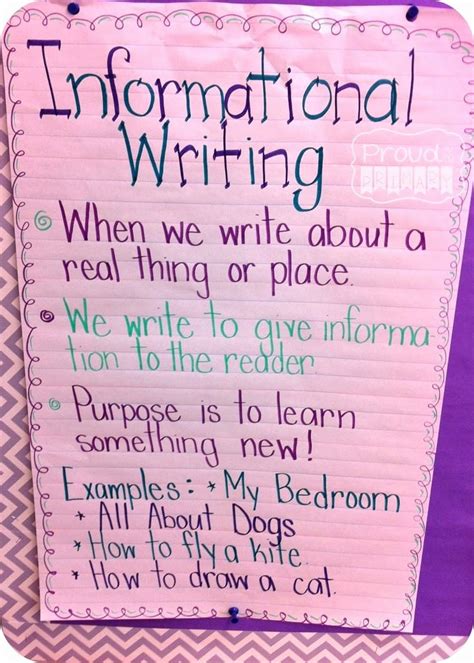 Informational
Writing
Proud to be
PRIMARY
When we write about a
real thing or place.
We write to give informa-
tion to the reader.
Purpose is to learn
something new!
Examples: * My Bedroom
* All About Dogs
* How to fly a kite.
* How to draw a cat.